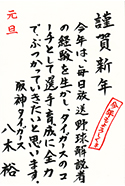 謹賀新年
今年は、毎日放送野球解説者
の経験を生かし、タイガースのコ
ーチとして選手育成に全力
で、ぶつかっていきたいと思います。
阪神タイガース
八木 裕
元旦
今年もよろしく